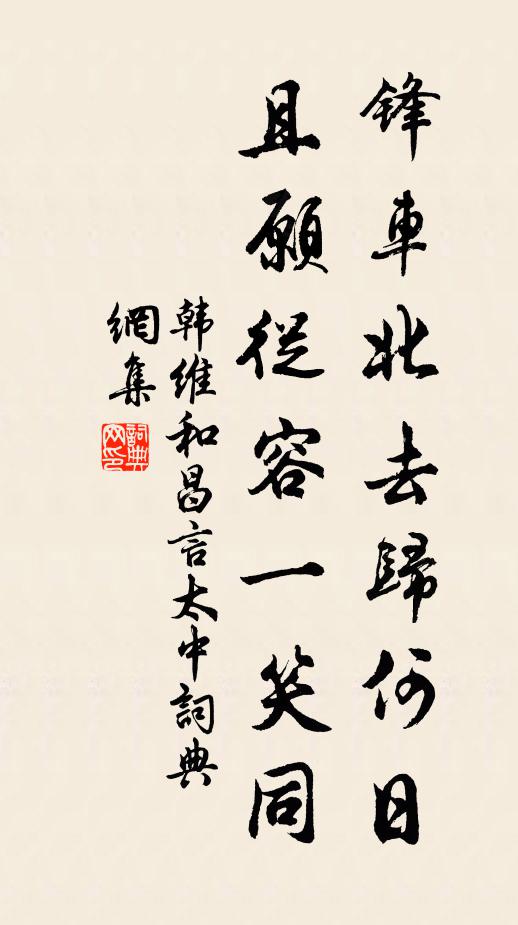 鋒車北去歸何日
且願從容一笑同
韩維和昌言太中詞典
網集
詞典
网印